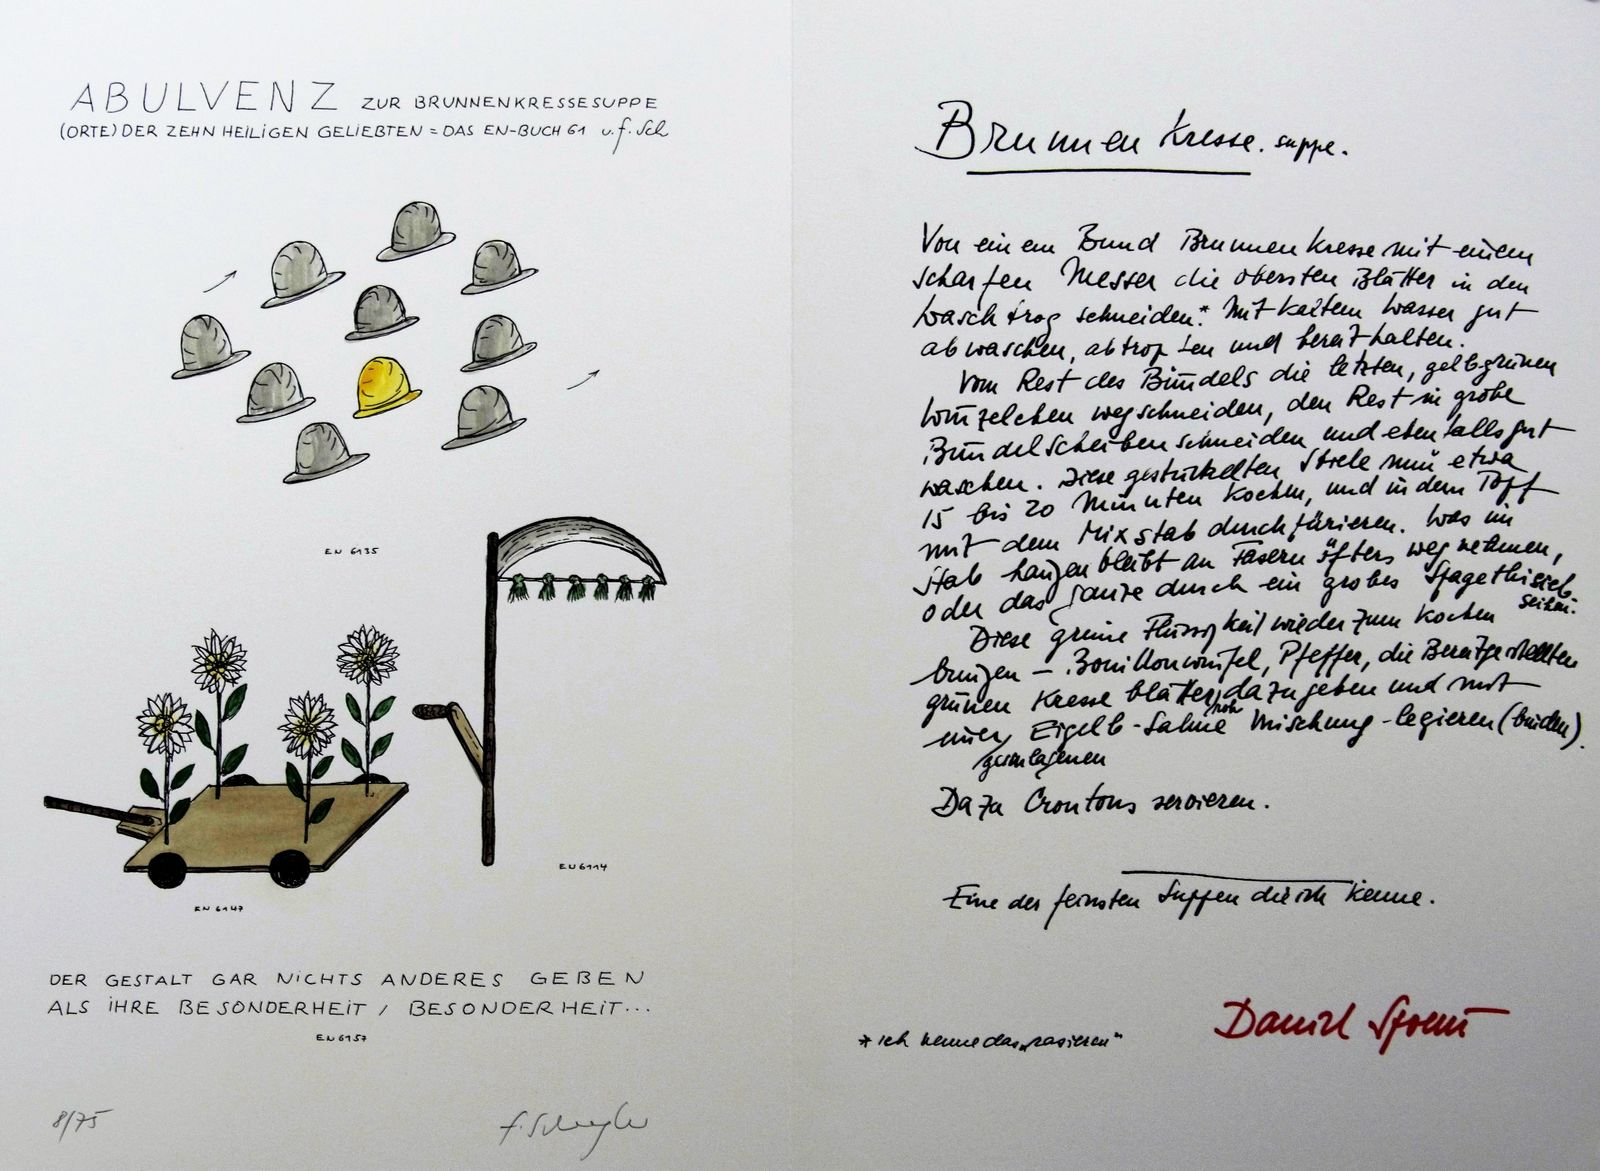 ABULVENZ ZUR BRUNNENKRESSESUPPE
(ORTE) DER ZEHN HEILIGEN GELIEBTEN = DAS EN-BUCH 61 v. f. Sch
EN 6135
EN 6114
EN 6147
DER GESTALT GAR NICHTS ANDERES GEBEN
ALS IHRE BESONDERHEIT / BESONDERHEIT...
EN 6157
8/75
Brunnen Kresse. suppe.
Von einem Bund Brunnenkresse mit einem
scharfen Messer die obersten Blätter in den
Waschtrog schneiden.* Mit kaltem Wasser gut
abwaschen, abtropfen und bereithalten.
Vom Rest des Bündels die letzten, gelbgrünen
Würzelchen wegschneiden, den Rest in grobe
Bündelscheiben schneiden und ebenfalls gut
waschen. Diese gestückelten Stiele nun etwa
15 bis 20 Minuten kochen, und in dem Topf
mit dem Mixstab durchpürieren. Was im
Stab hangen bleibt an Fasern öfters wegnehmen,
oder das ganze durch ein grobes Spagethisieb
seihen.
Diese grüne Flüssigkeit wieder zum Kochen
bringen – Bouillonwürfel, Pfeffer, die Bereitgestellten
grünen Kresseblätter, dazugeben und mit
einer Eigelb-Sahne Mischung - legieren (binden).
geschlagenen
Dazu Croutons servieren.
Eine der feinsten Suppen die ich kenne.
* ich nenne das „rasieren"
Daniel Spoerri